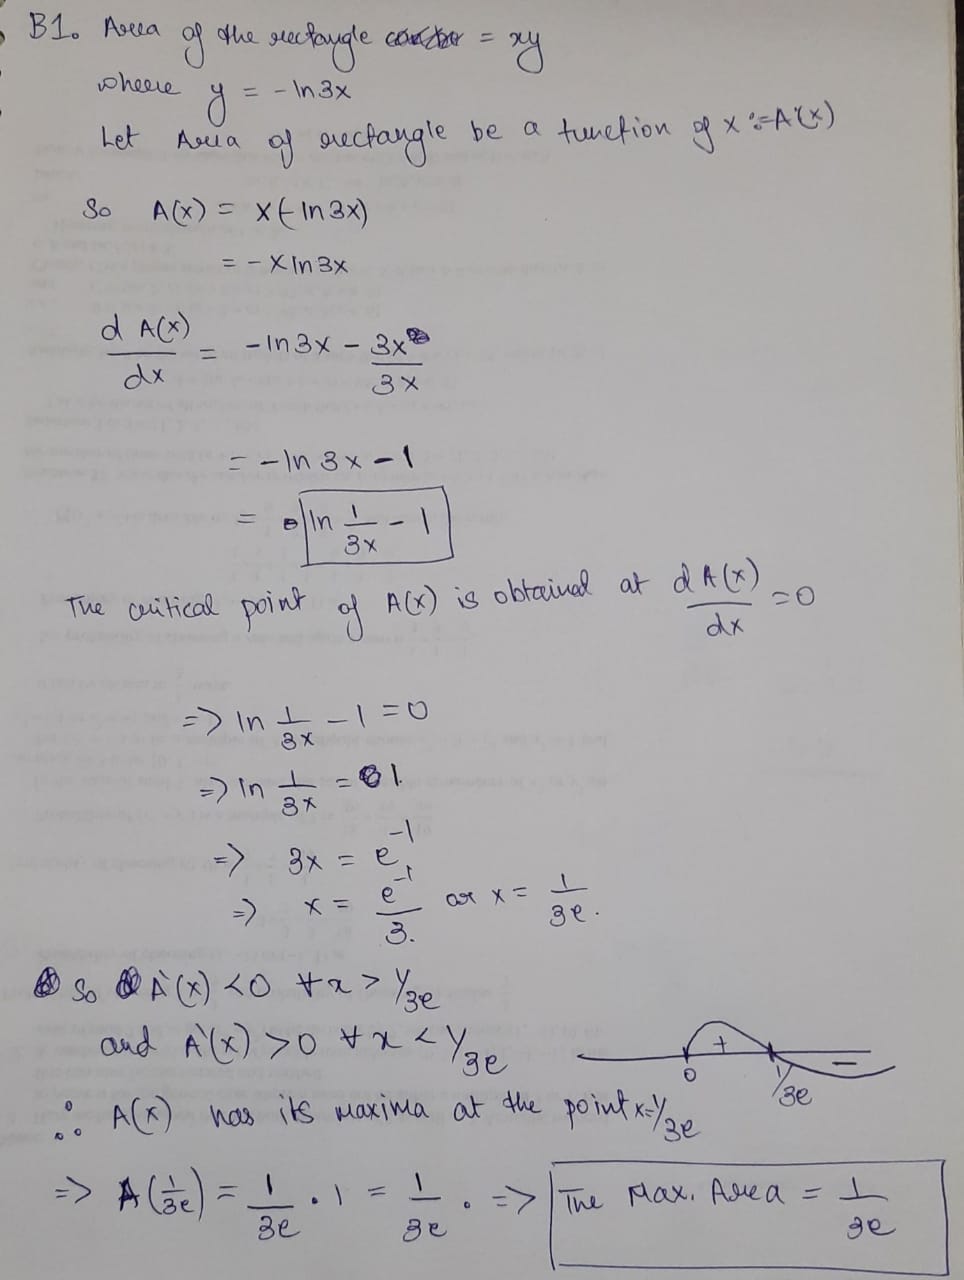 B1. Area of the rectangle = xy
where y = - ln3x
Let Area of rectangle be a function of x := A(x)
So A(x) = x(-ln3x)
= - x ln3x
d A(x)/dx = -ln3x - 3x/3x
= - ln 3x - 1
= ln 1/3x - 1
The critical point of A(x) is obtained at dA(x)/dx = 0
=> ln 1/3x - 1 = 0
=> ln 1/3x = 1
=> 3x = e^-1
=> x = e^-1/3. or x = 1/3e.
So A'(x) < 0 ∀ x > 1/3e
and A'(x) > 0 ∀ x < 1/3e
+ -
0 1/3e
∴ A(x) has its maxima at the point x=1/3e
=> A(1/3e) = 1/3e . 1 = 1/3e . => The Max. Area = 1/3e